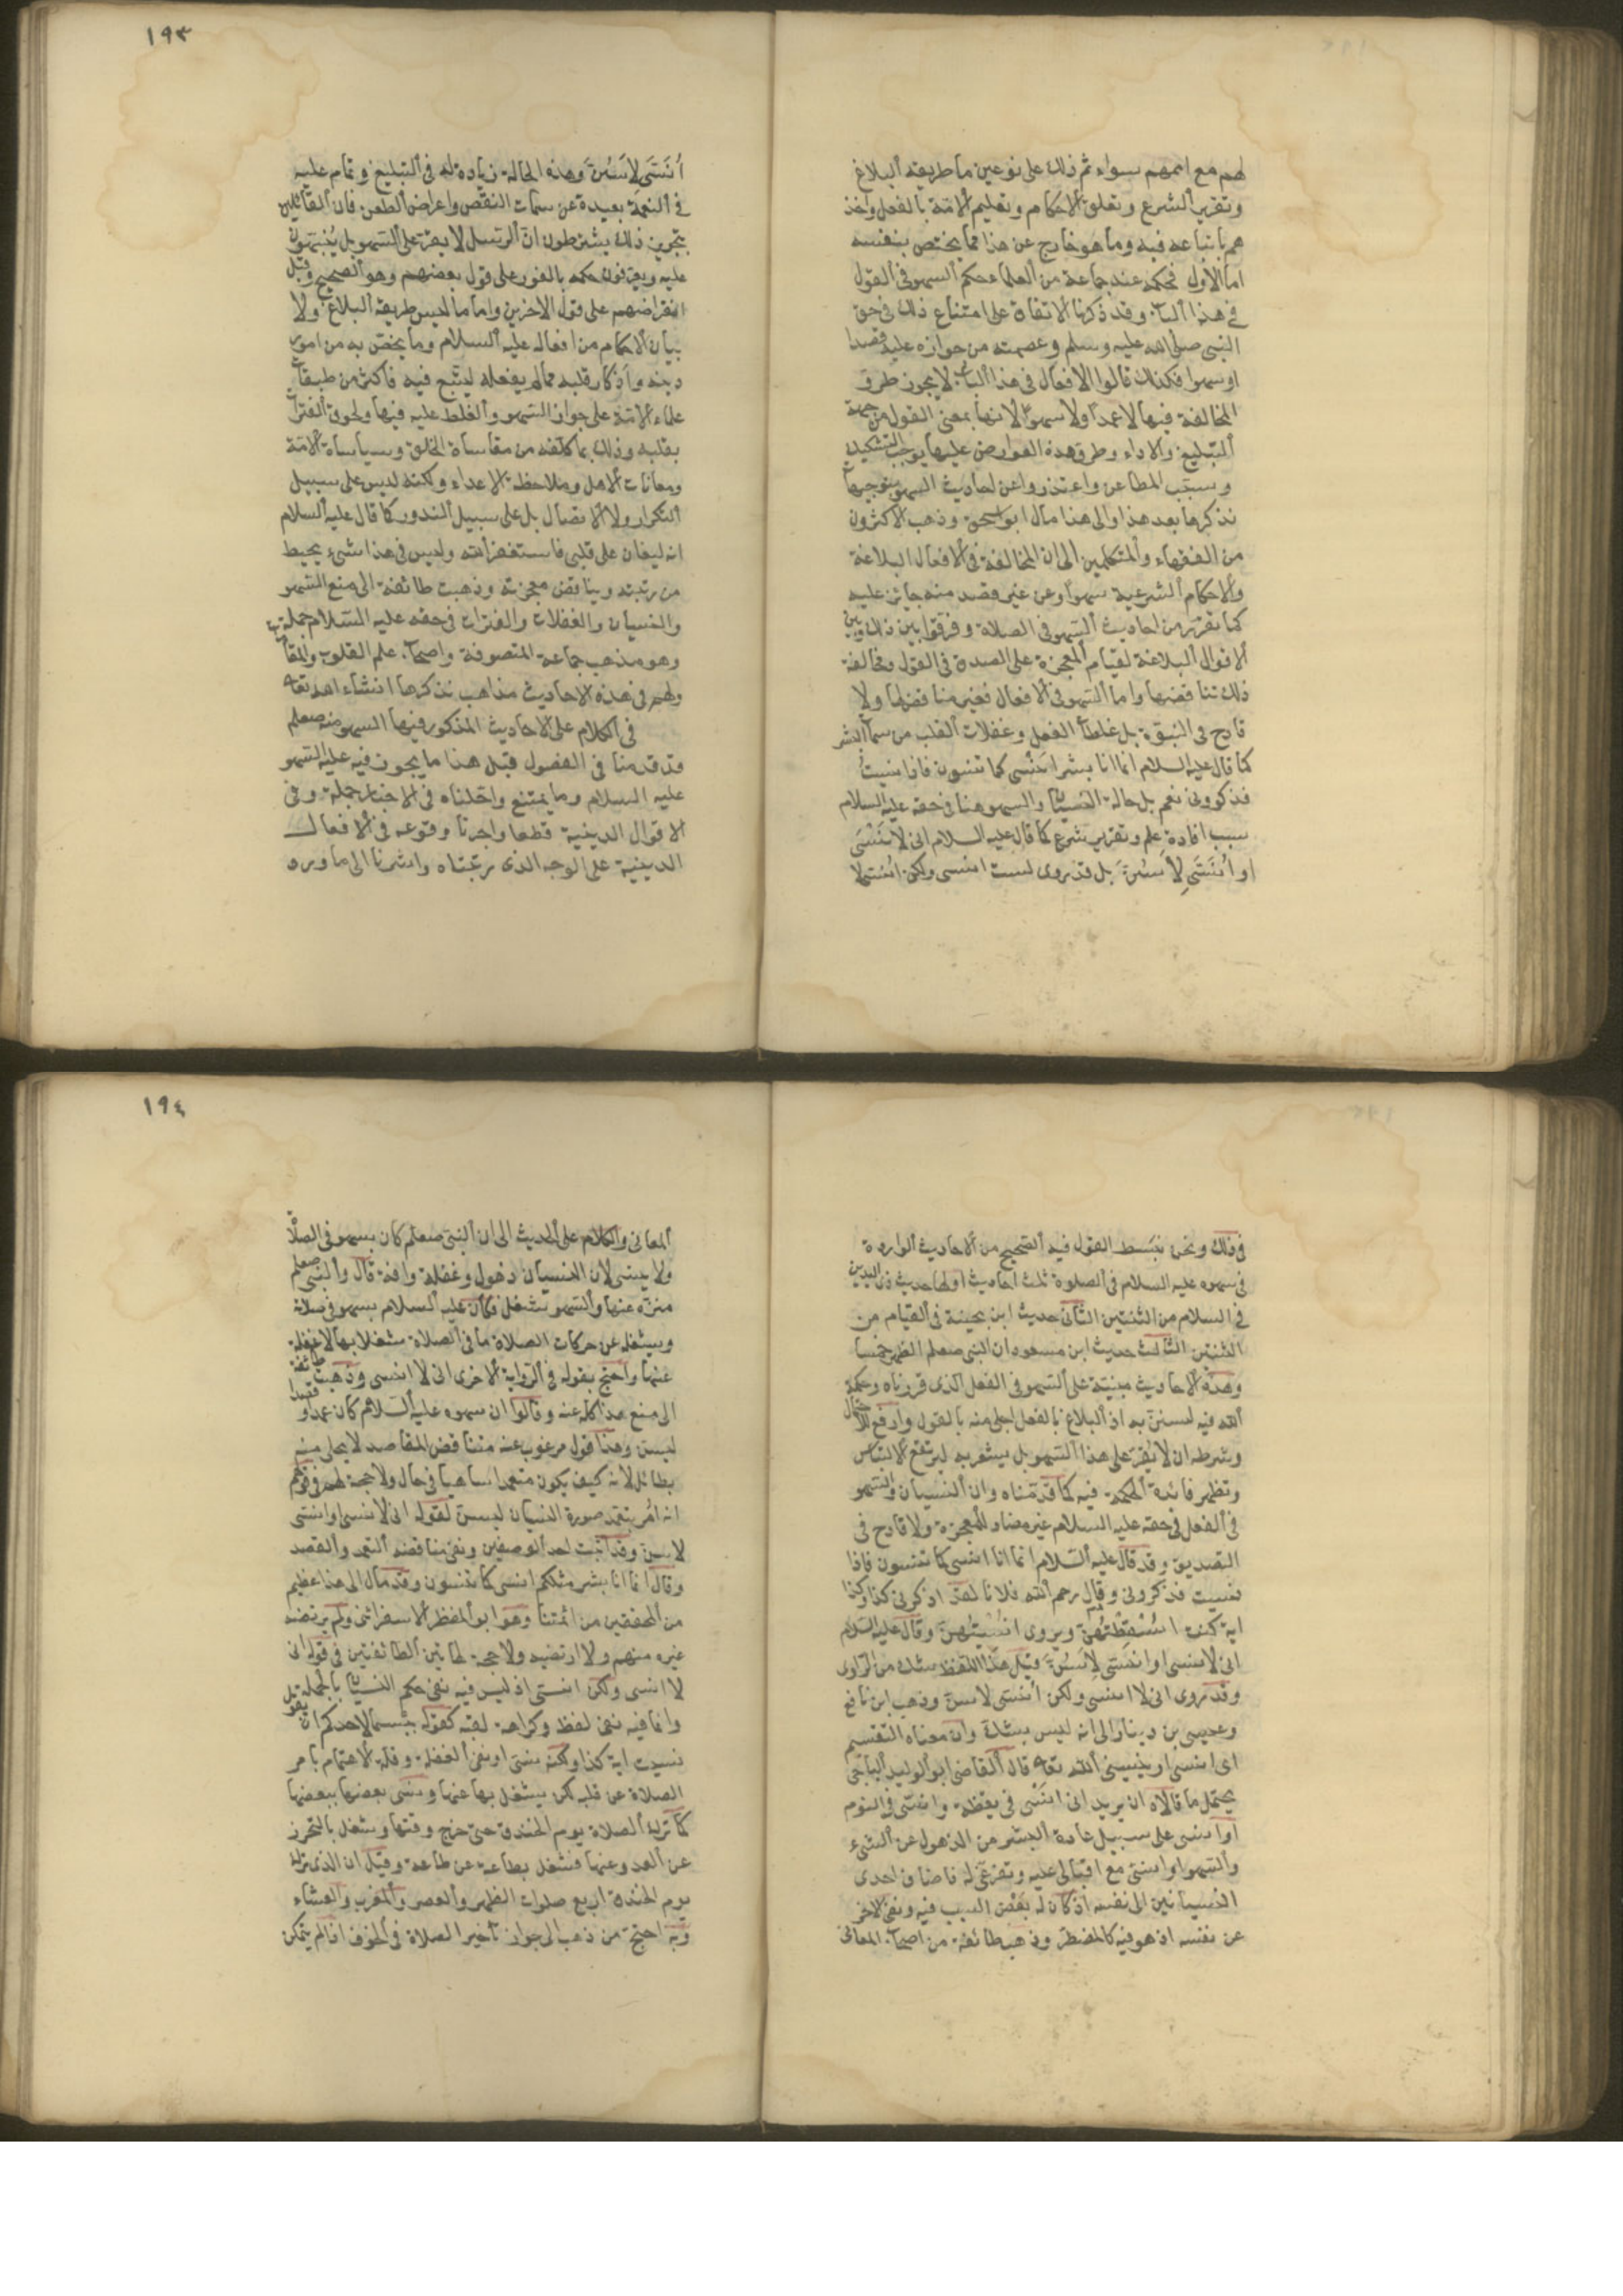 لهم مع اممهم سواء ثم ذلك على نوعين ما طريقه البلاغ
وتقرير الشرع وتعلق الاحكام وتعليم الامة بالفعل واخذ
هم باتباعه فيه وما هو خارج عن هذا مما يختص بنفسه
اما الاول فحكمه عند جماعة من العلماء حكم السهو في القول
في هذا الباب وقد ذكرنا الاتفاق على امتناع ذلك في حق
النبي صلى الله عليه وسلم وعصمته من جوازه عليه قصدا
او سهوا فكذلك قالوا الافعال في هذا الباب لا يجوز طرو
المخالفة فيها لا عمدا ولا سهوا لانها بمعنى القول من جهة
التبليغ والاداء وطرو هذه العوارض عليها يوجب التشكيك
وسبب المطاعن واعتذروا عن احاديث السهو بتوجيهات
نذكرها بعد هذا والى هذا مال ابو اسحق وذهب الاكثرون
من الفقهاء والمتكلمين الى ان المخالفة في الافعال البلاغية
والاحكام الشرعية سهوا وعن غير قصد منه جائز عليه
كما تقرر من احاديث السهو في الصلاة وفرقوا بين ذلك وبين
الاقوال البلاغية لقيام المعجزة على الصدق في القول ومخالفة
ذلك تناقضها واما السهو في الافعال فغير مناقض لها ولا
قادح في النبوة بل غلطات الفعل وغفلات القلب من سمات البشر
كما قال عليه السلام انما انا بشر انسى كما تنسون فاذا نسيت
فذكروني نعم بل حالة النسيان والسهو هنا في حقه عليه السلام
سبب افادة علم وتقرير شرع كما قال عليه السلام اني لانسى
او انسى لاسن بل قد روى لست انسى ولكن انسى لا
١٩٣
انسى لاسن وهذه الحالة زيادة له في التبليغ وتمام عليه
في النعمة بعيدة عن سمات النقص واعراض الطعن فان القائلين
بتجويز ذلك يشترطون ان الرسل لا يقر على السهو بل ينبهون
عليه ويعرفون حكمه بالفور على قول بعضهم وهو الصحيح وقبل
انقراضهم على قول الاخرين واما ما ليس طريقه البلاغ ولا
بيان الاحكام من افعاله عليه السلام وما يختص به من امور
دينه واذكار قلبه مما لم يفعله ليتبع فيه فاكثر من طبقات
علماء الامة على جواز السهو والغلط عليه فيها ولحوق الفترات
بقلبه وذلك بما كلفه من مقاساة الخلق وسياساة الامة
ومعانات الاهل وملاحظة الاعداء ولكنه ليس على سبيل
التكرار ولا الاتصال بل على سبيل الندور كما قال عليه السلام
انه ليغان على قلبي فاستغفر الله وليس في هذا شيء يحيط
من رتبته ويناقض معجزته وذهبت طائفة الى منع السهو
والنسيان والغفلات والفترات في حقه عليه السلام جملة
وهو مذهب جماعة المتصوفة واصحاب علم القلوب والمقامات
ولهم في هذه الاحاديث مذاهب نذكرها انشاء الله تعالى
في الكلام على الاحاديث المذكور فيها السهو منه صلعم
قد قدمنا في الفصول قبل هذا ما يجوز فيه عليه السهو
عليه السلام وما يمتنع واحلناه في الاخبار جملة وفي
الاقوال الدينية قطعا واجزنا وقوعه في الافعال
الدينية على الوجه الذي رتبناه واشرنا الى ما ورد
في ذلك ونحن نبسط القول فيه الصحيح من الاحاديث الواردة
في سهوه عليه السلام في الصلوة ثلث احاديث اولها حديث ذي اليدين
في السلام من اثنتين الثاني حديث ابن بحينة في القيام من
اثنتين الثالث حديث ابن مسعود ان النبي صلعم الظهر خمسا
وهذه الاحاديث مبنية على السهو في الفعل الذي قررناه وحكمة
الله فيه ليستن به اذ البلاغ بالفعل اجلى منه بالقول وارفع للاحتمال
وشرطه ان لا يقر على هذا السهو بل يشعر به ليرتفع الالتباس
وتظهر فائدة الحكمة فيه كما قدمناه وان النسيان والسهو
في الفعل في حقه عليه السلام غير مضاد للمعجزة ولا قادح في
التصديق وقد قال عليه السلام انما انا انسى كما تنسون فاذا
نسيت فذكروني وقال رحم الله فلانا لقد اذكرني كذا وكذا
اية كنت اسقطتهن ويروى انسيتهن وقال عليه السلام
اني لانسى او انسى لاسن قيل هذا اللفظ شك من الراوى
وقد روى اني لا انسى ولكن انسى لاسن وذهب ابن نافع
وعيسى بن دينار الى انه ليس بشك وان معناه التقسيم
اى انسى او ينسيني الله تعالى قال القاضي ابو الوليد الباجي
يحتمل ما قالاه ان يريد اني انسى في يقظة وانسى في النوم
او انسى على سبيل عادة البشر من الذهول عن الشيء
والسهو او انسى مع اقبالي عليه وتفرغي له فاضاف احدى
النسيانين الى نفسه اذ كان له بعض السبب فيه ونفى الاخر
عن نفسه اذ هو فيه كالمضطر وذهب طائفة من اصحاب المعاني
١٩٤
المعاني والكلام على الحديث الى ان النبي صلعم كان يسهو في الصلاة
ولا ينسى لان النسيان ذهول وغفلة وافة قال والنبي صلعم
منزه عنها والسهو شغل فكان عليه السلام يسهو في صلاته
ويشغله عن حركات الصلاة ما في الصلاة شغلا بها لا غفلة
عنها واحتج بقوله في الرواية الاخرى اني لا انسى وذهبت طائفة
الى منع هذا كله عنه وقالوا ان سهوه عليه السلام كان عمدا وقصدا
ليسن وهذا قول مرغوب عنه متناقض المقاصد لا يحلى منه
بطائل لانه كيف يكون متعمدا ساهيا في حال ولا حجة لهم في قولهم
انه امر بتعمد صورة النسيان ليسن لقوله اني لا نسى او انسى
لاسن وقد اثبت احد الوصفين ونفى مناقضة التعمد والقصد
وقال انما انا بشر مثلكم انسى كما تنسون وقد مال الى هذا عظيم
من المحققين من ائمتنا وهو ابو المظفر الاسفرائني ولم يرتضه
غيره منهم ولا ارتضيه ولا حجة لهاتين الطائفتين في قوله اني
لا انسى ولكن انسى اذ ليس فيه نفى حكم النسيان بالجملة
وانما فيه نفى لفظه وكراهة لقبه كقوله بئسما لاحدكم ان يقول
نسيت اية كذا ولكنه نسى او نفى الغفلة وقلة الاهتمام بامر
الصلاة عن قلبه لكن يشغل بها عنها وينسى بعضها ببعضها
كما ترك الصلاة يوم الخندق حتى خرج وقتها وشغل بالتحرز
عن العدو عنها فشغل بطاعة عن طاعة وقيل ان الذي ترك
يوم الخندق اربع صلوات الظهر والعصر والمغرب والعشاء
وبه احتج من ذهب الى جواز تأخير الصلاة في الخوف اذا لم يتمكن